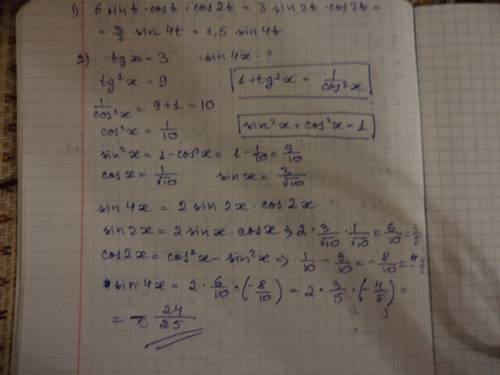 1) 6 sin t · cos t · cos 2t = 3 sin 2t · cos 2t =
= 3/2 sin 4t = 1,5 sin 4t
2) tg x = 3 sin 4x - ?
tg²x = 9 1 + tg²x = 1/cos²x
1/cos²x = 9 + 1 = 10
cos²x = 1/10 sin²x + cos²x = 1
sin²x = 1 - cos²x = 1 - 1/10 = 9/10
cos x = 1/√10 sin x = 3/√10
sin 4x = 2 sin 2x · cos 2x
sin 2x = 2 sin x · cos x ⇒ 2 · 3/√10 · 1/√10 = 6/10 = 3/5
cos 2x = cos²x - sin²x ⇒ 1/10 - 9/10 = -8/10 = -4/5
sin 4x = 2 · 6/10 · (-8/10) = 2 · 3/5 · (-4/5) =
= - 24/25